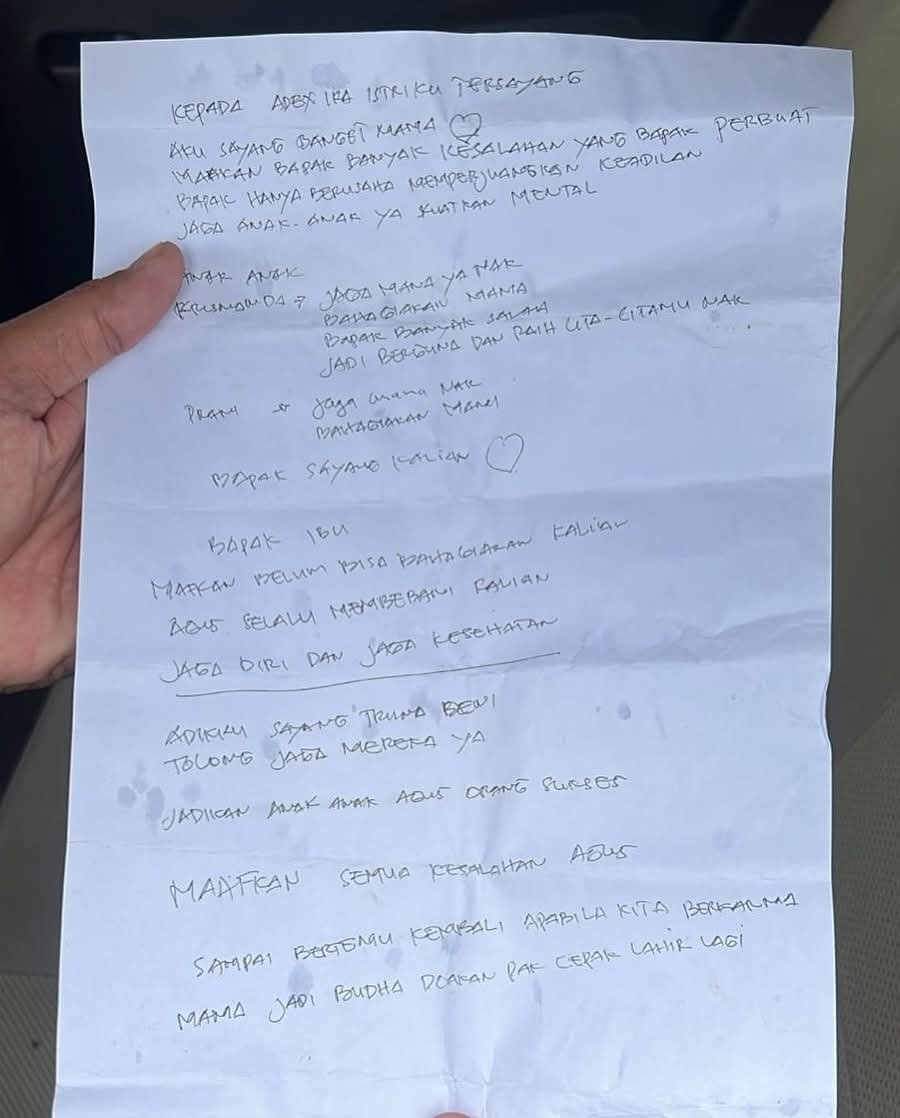 KEPADA ADEX IRA ISTRIKU TERSAYANG
AKU SAYANG BANGET MAMA
MAAFKAN BAPAK BANYAK KESALAHAN YANG BAPAK PERBUAT
BAPAK HANYA BERUSAHA MEMPERJUANGKAN KEADILAN
JAGA ANAK-ANAK YA KUATKAN MENTAL
ANAK ANAK
JAGA MAMA YA NAK
BAHAGIAKAN MAMA
BAPAK BANYAK SALAH
JADI BERGUNA DAN RAIH CITA-CITAMU NAK
Jaga mama NAK
BAHAGIAKAN MAMA
BAPAK SAYANG KALIAN
BAPAK IBU
MAAFKAN BELUM BISA BAHAGIAKAN KALIAN
AGUS SELALU MEMBEBANI KALIAN
JAGA DIRI DAN JAGA KESEHATAN
ADIKKU SAYANG TRUNA DEWI
TOLONG JAGA MEREKA YA
JADIKAN ANAK ANAK AGUS ORANG SUKSES
MAAFKAN SEMUA KESALAHAN AGUS
SAMPAI BERTEMU KEMBALI APABILA KITA BERKARMA
MAMA JADI BUDHA DOAKAN PAK CEPAK LAHIR LAGI